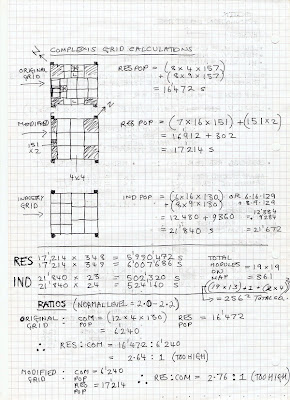 COMPLEXIS GRID CALCULATIONS
N
ORIGINAL GRID
RES POP = (8×4×157)
+ (8×9×157)
= 16'472 s
N
MODIFIED
151 ×2
RES POP = (7×16×151) + (151×2)
= 16912 + 302
= 17214 s
4×4
INDUSTRY GRID
IND POP = (6×16×130) OR 6·16·129
+ (8×9×130) + 8·9·129
= 12480 + 9360
= 21'840 s = 21'672
RES 17'214 × 348 = 5990472 s
17'214 × 349 = 6007686 s
IND 21'840 × 23 = 502'320 s
21'840 × 24 = 524'160 s
TOTAL MODULES ON MAP = 19×19
= 361
= 256² TOTAL SQ.
RATIOS (NORMAL LEVEL = 2·0 - 2·2)
ORIGINAL GRID : COM POP = (12×4×130) RES POP = 16'472
= 6'240
∴ RES:COM = 16'472 : 6'240
= 2·64 : 1 (TOO HIGH)
MODIFIED GRID : COM POP = 6'240
RES POP = 17214
∴ RES:COM = 2·76 : 1 (TOO HIGH)